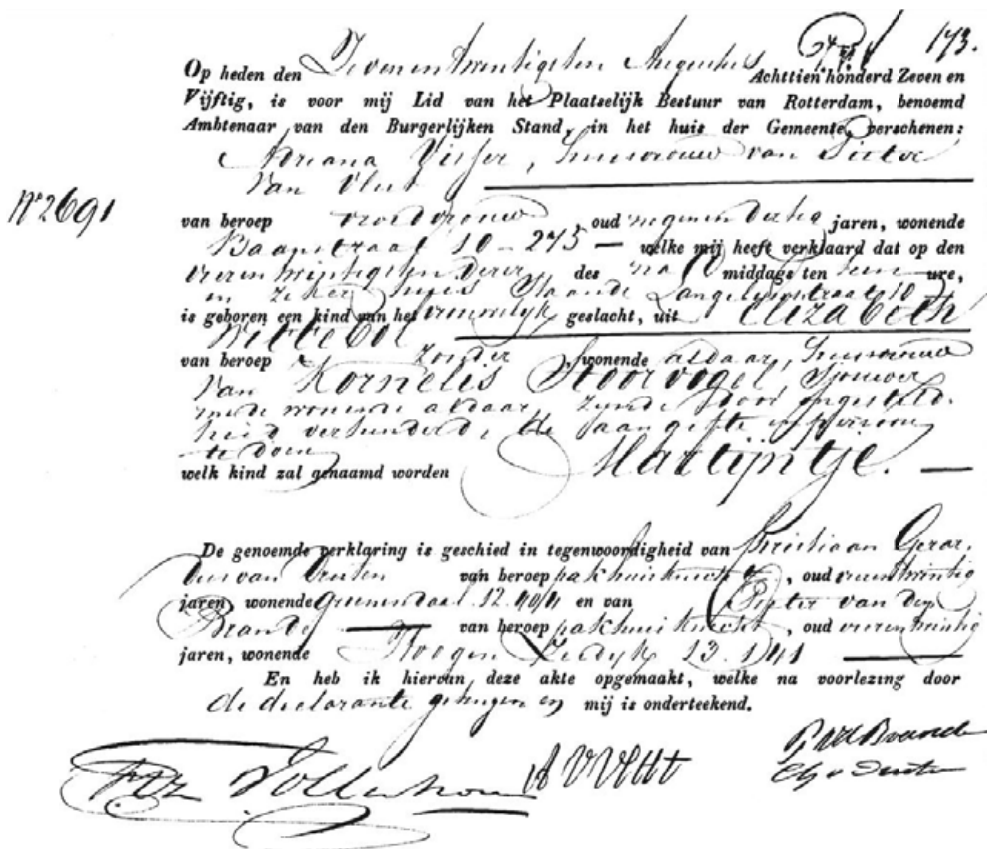 173.
Op heden den Zevenentwintigsten Augustus Achttien honderd Zeven en
Vijftig, is voor mij Lid van het Plaatselijk Bestuur van Rotterdam, benoemd
Ambtenaar van den Burgerlijken Stand, in het huis der Gemeente, verschenen:
Adriana Visser, huisvrouw van Pieter
van Vliet
No 2691
van beroep vroedvrouw, oud negenendertig jaren, wonende
Baanstraat 10-275 — welke mij heeft verklaard dat op den
vierentwintigsten dezer des na middags ten tien ure,
in zeker huis staande Langelijnstraat 10
is geboren een kind van het vrouwelijk geslacht, uit Elizabeth
Wittebol
van beroep zonder wonende aldaar, huisvrouw
van Kornelis Stoorvogel, Sjouwer
mede wonende aldaar, zijnde door ongesteld-
heid verhinderd, de aangifte in persoon
te doen
welk kind zal genaamd worden Martijntje. —
De genoemde verklaring is geschied in tegenwoordigheid van Christiaan Gerar-
dus van Deuten van beroep pakhuisknecht, oud vierentwintig
jaren, wonende Groenendaal 12.404 en van Pieter van den
Brande — van beroep pakhuisknecht, oud vierentwintig
jaren, wonende Hoogen Zeedijk 13.141
En heb ik hiervan deze akte opgemaakt, welke na voorlezing door
de declarante getuigen en mij is onderteekend.
P. vd Brande
A V Vliet